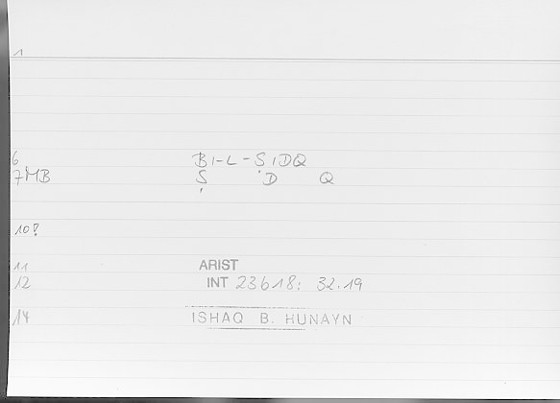 1
6 BI-L-SIDQ
7MB Ṣ D Q
10?
11 ARIST
12 INT 23618: 32.19
14 ISHAQ B. HUNAYN